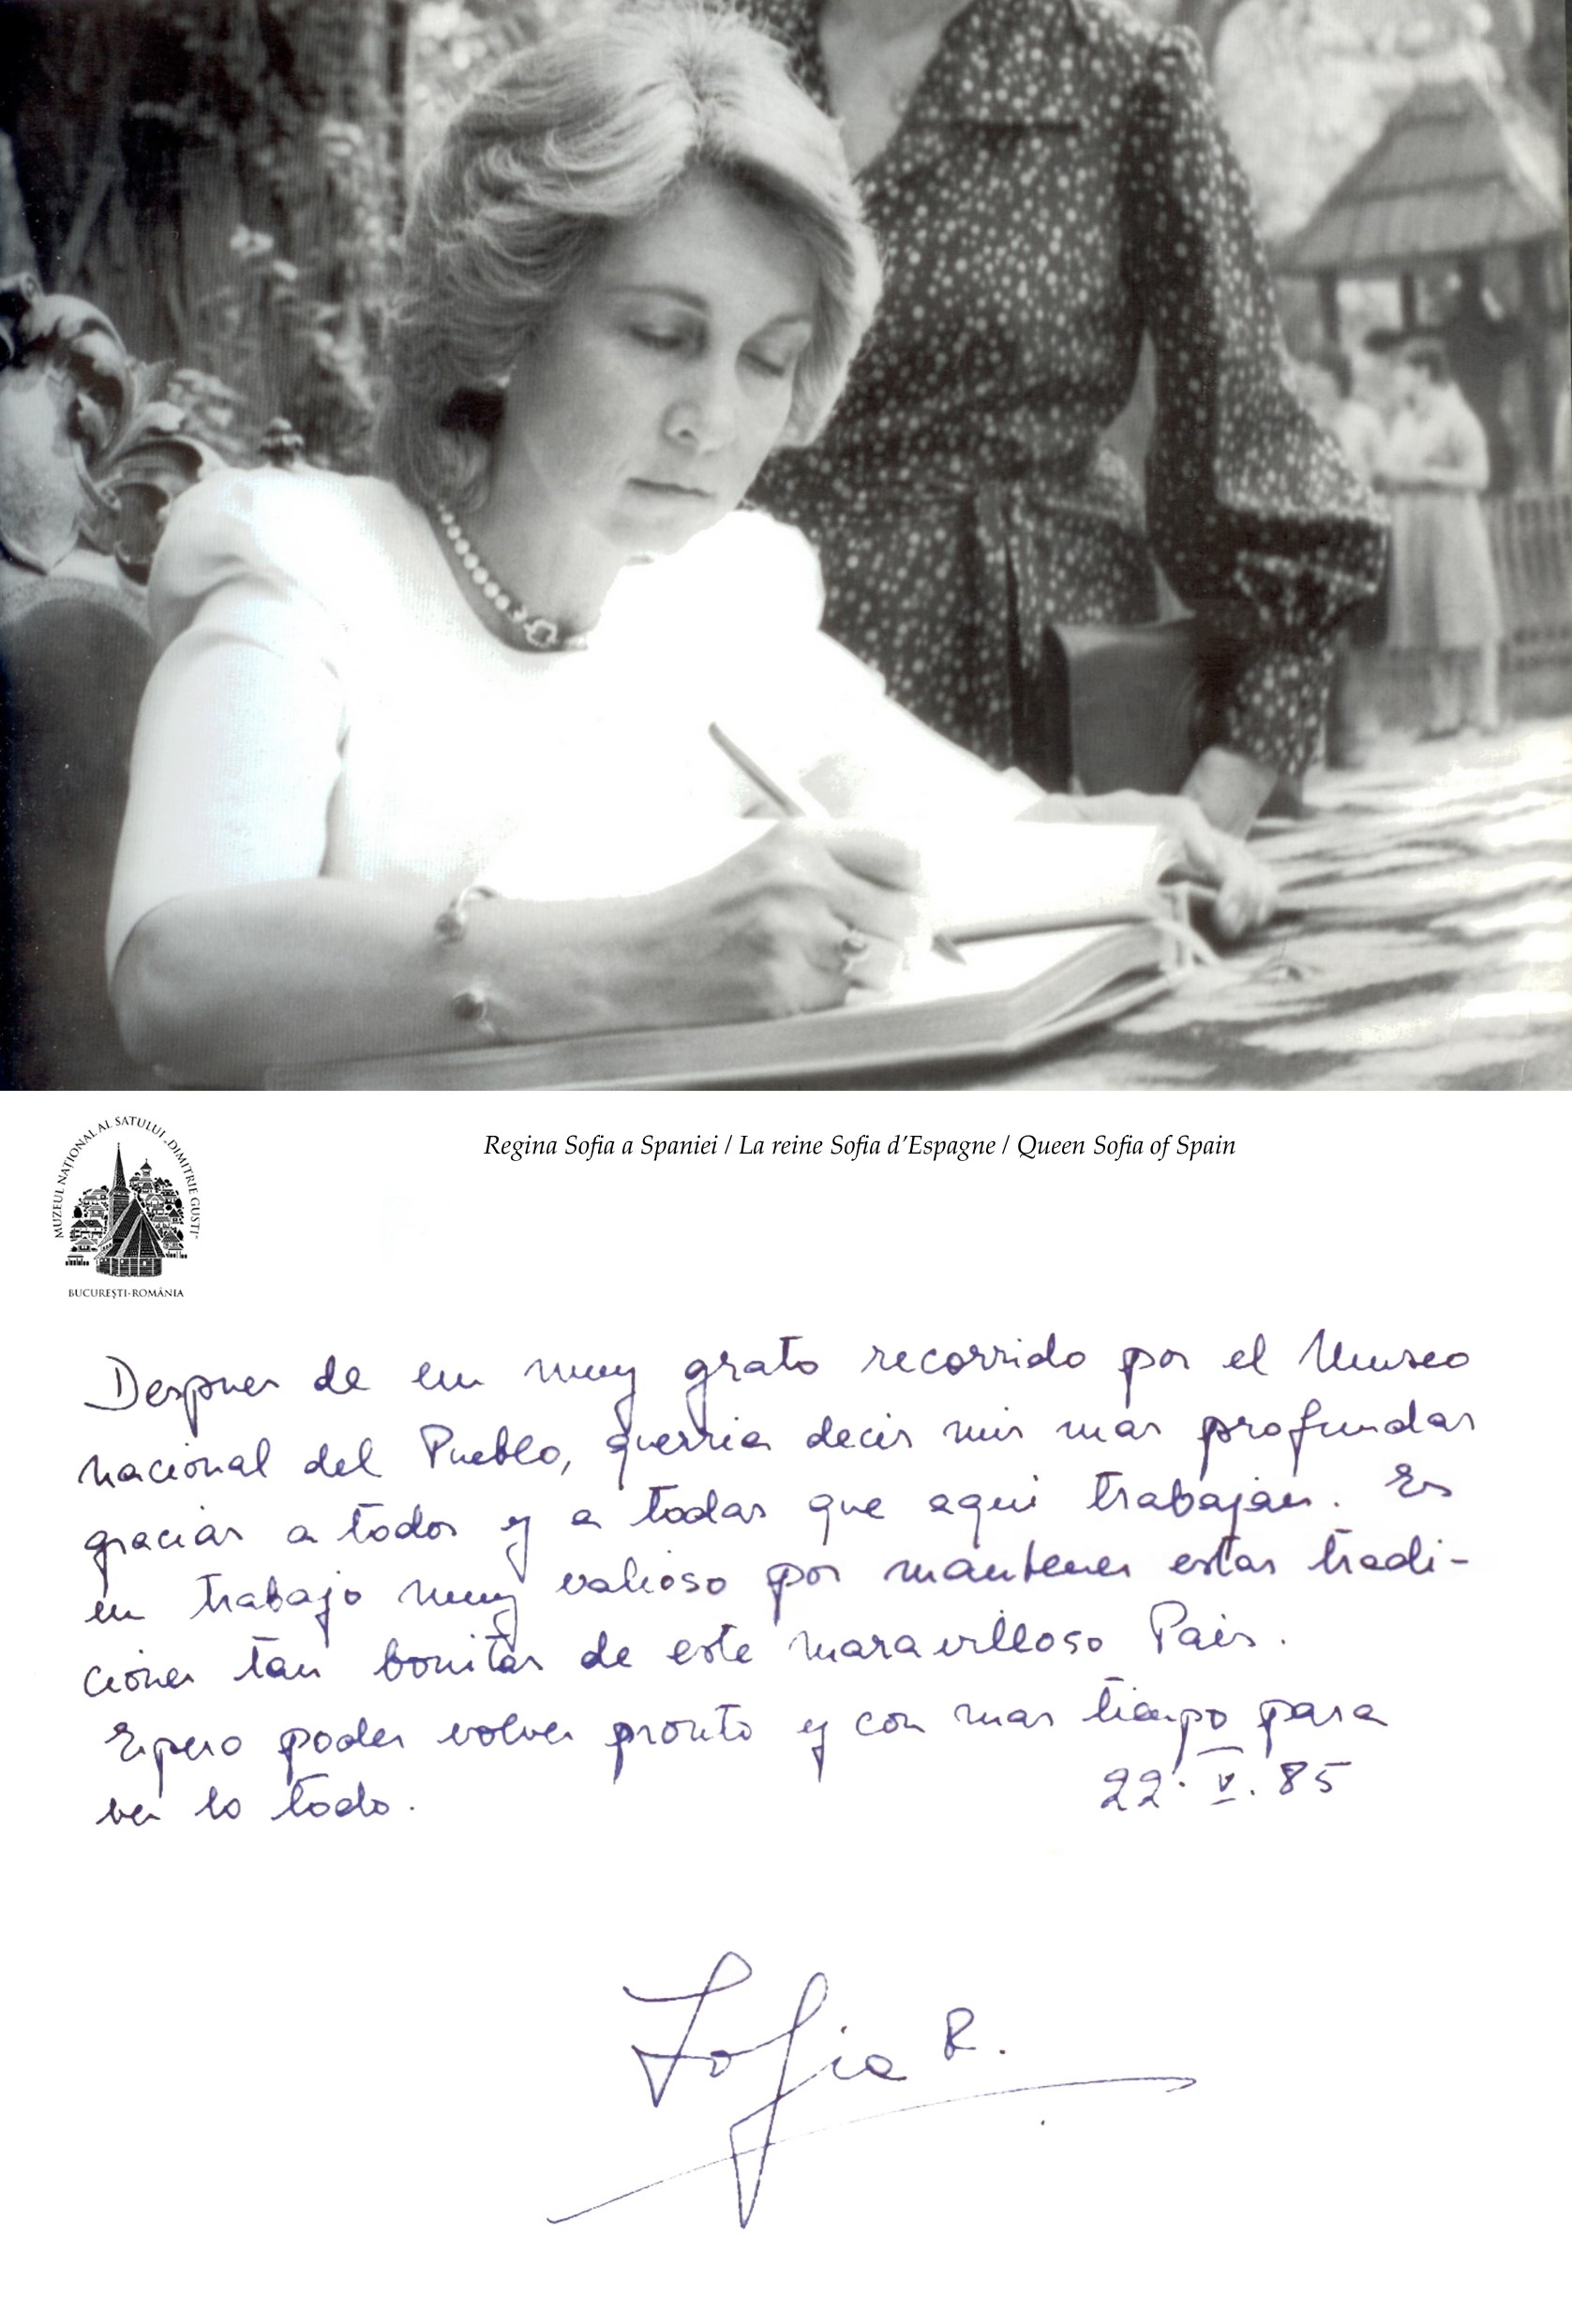 Regina Sofia a Spaniei / La reine Sofia d'Espagne / Queen Sofia of Spain
MUZEUL NAȚIONAL AL SATULUI „DIMITRIE GUSTI”
BUCUREȘTI-ROMÂNIA
Despues de un muy grato recorrido por el Museo
nacional del Pueblo, querria decir mis mas profundas
gracias a todos y a todas que aqui trabajan. Es
un trabajo muy valioso por mantener estas tradi-
ciones tan bonitas de este maravilloso Pais.
Espero poder volver pronto y con mas tiempo para
ver lo todo.
22.V.85
Sofia R.